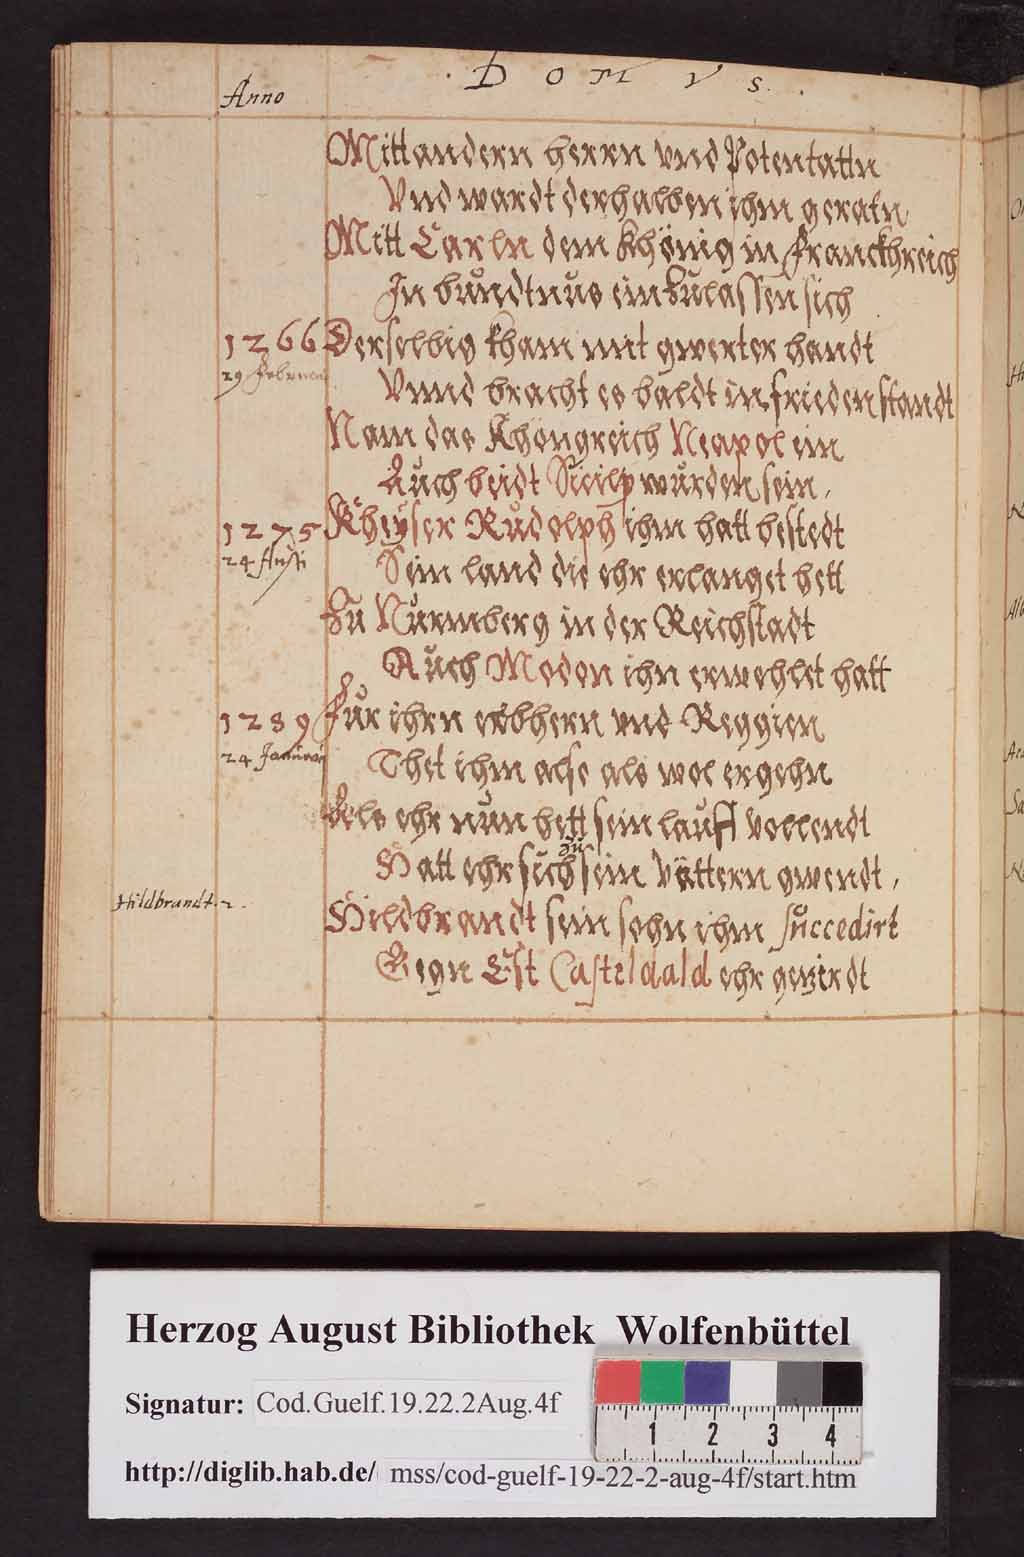 DOMVS.
Anno
Mitt andern herrn vnd Potentattn
Vnd wardt derhalben ihm geratn
Mitt Carln dem Khönig in Franckhreich
In bůndtnůs einzůlassen sich
1266 Derselbig kham mit gwerter handt
29 Februarij
Vnnd bracht es baldt in frieden standt
Nam das Khöngreich Neapol ein
Aůch beidt Sicilÿ wůrden sein,
1275 Kheÿser Růdolph ihm hatt bestedt
24 Aůsti
Sein land die ehr erlanget hett
Zů Nůrmberg in der Reichstadt
Aůch Modon ihn erwehlet hatt
1289 Fůr ihrn erbhern vnd Reggien
24 Januarij
Thet ihm also als wol ergehn
Als ehr nůn hett sein laůff vollendt
Hatt ehr sich zů sein Vättern gwendt,
Hildbrandt. 2.
Hildbrandt sein sohn ihm sůccedirt
Gegn Est Casteldald ehr gezirdt
Herzog August Bibliothek Wolfenbüttel
Signatur: Cod.Guelf.19.22.2Aug.4f
1 2 3 4
http://diglib.hab.de/ mss/cod-guelf-19-22-2-aug-4f/start.htm